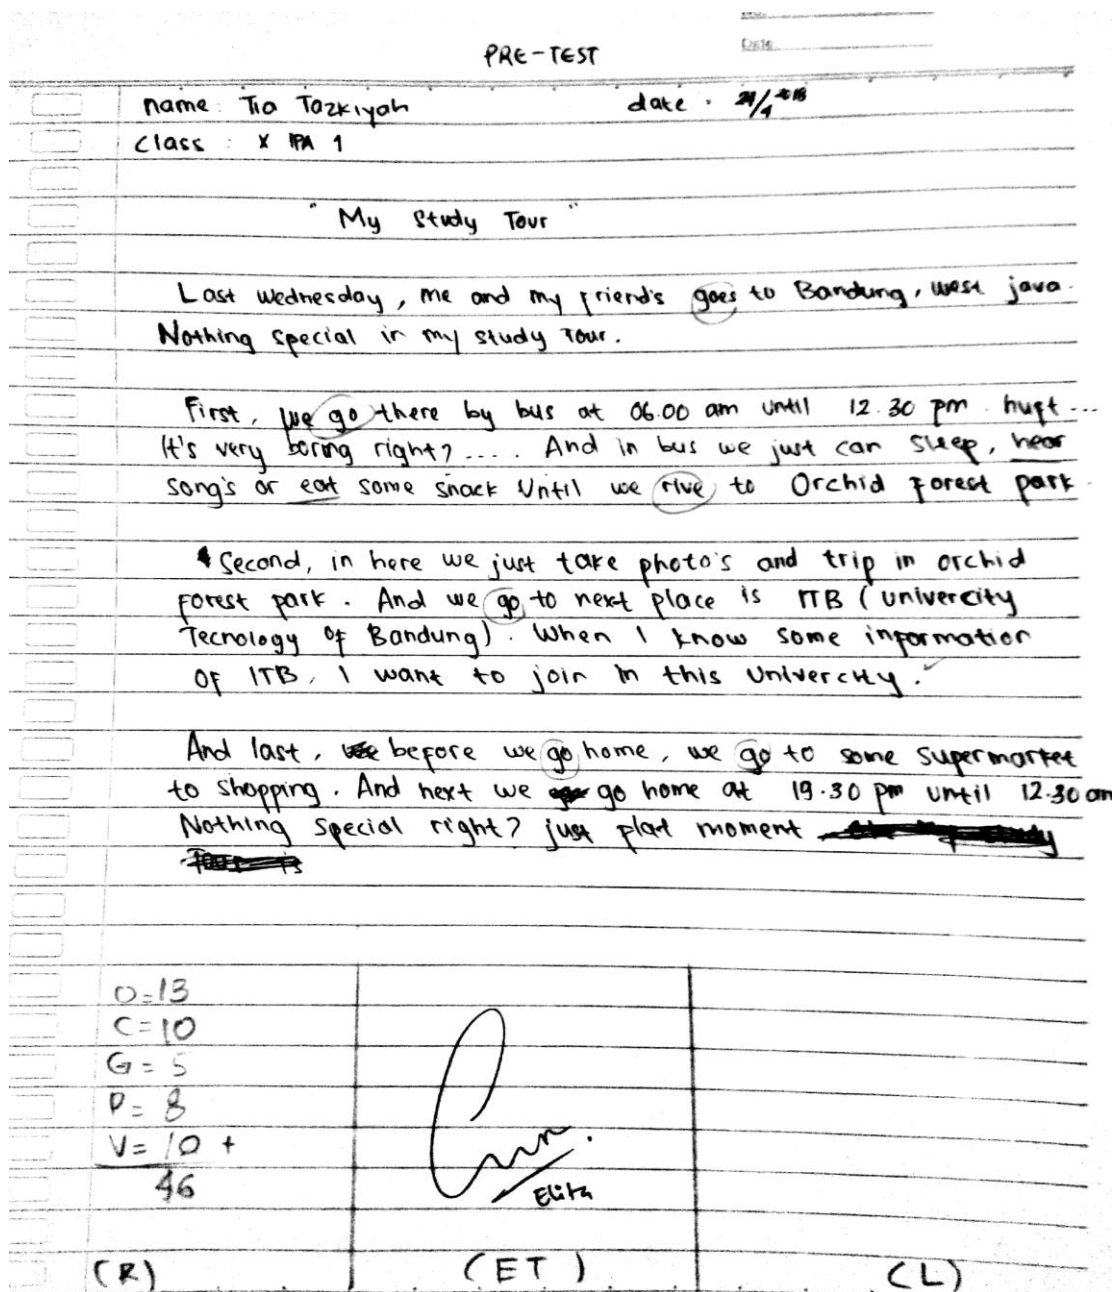 PRE-TEST
Date
name : Tia Tazkiyah date :
class : X IPA 1
"My Study Tour"
Last wednesday, me and my friend's goes to Bandung, west java.
Nothing special in my study Tour.
First, we go there by bus at 06.00 am until 12.30 pm. huft...
It's very boring right?.... And in bus we just can sleep, hear
song's or eat some snack Until we rive to Orchid Forest park.
Second, in here we just take photo's and trip in orchid
forest park. And we go to next place is ITB (univercity
Tecnology of Bandung). When I know some information
of ITB, I want to join in this Univercity.
And last, before we go home, we go to some supermarket
to shopping. And next we go home at 19.30 pm until 12.30 am
Nothing special right? just plat moment
O=13
C=10
G=5
P=8
V=10 +
46
Elita
(R) (ET) (L)